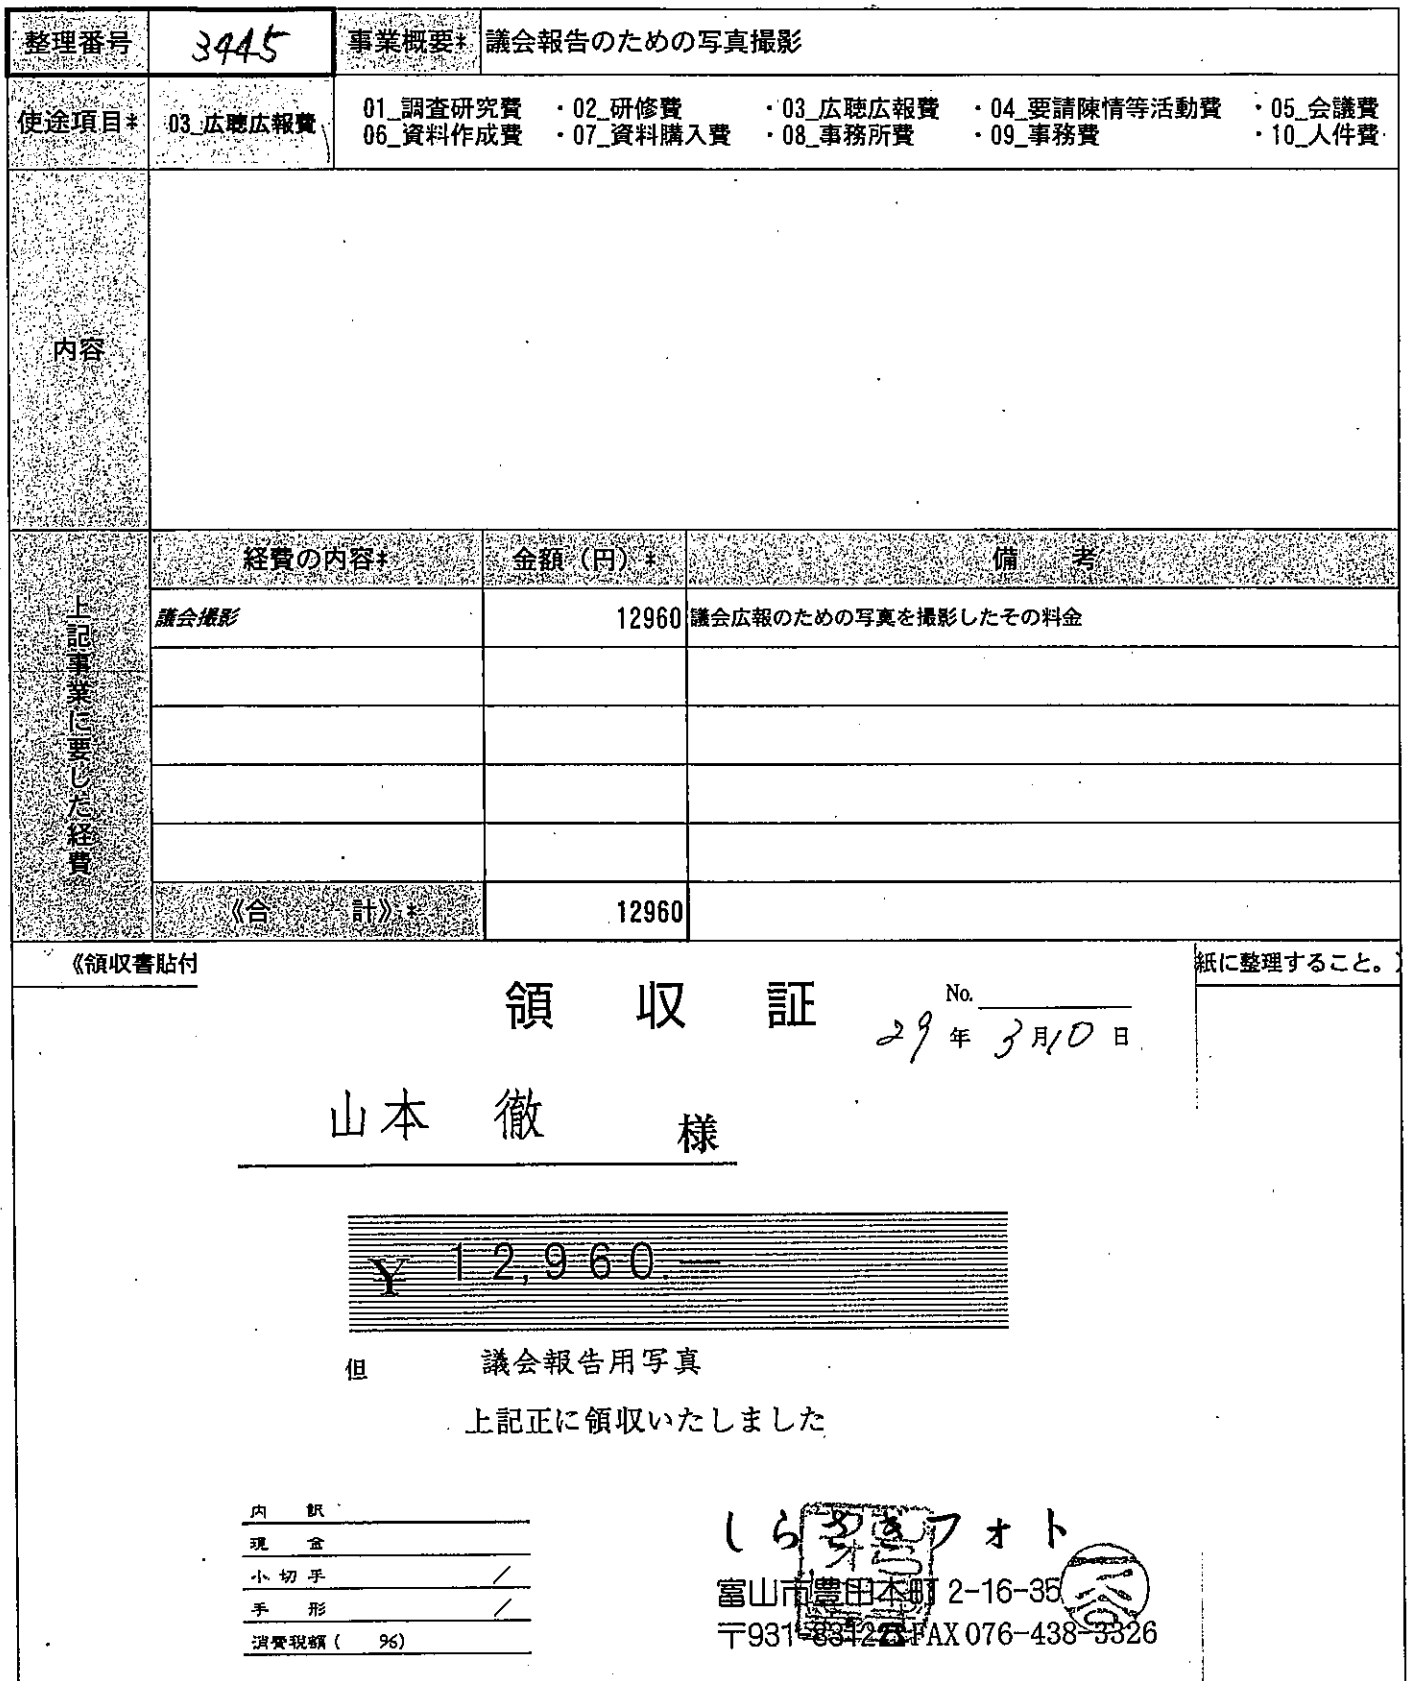 整理番号 3445 事業概要* 議会報告のための写真撮影
使途項目* 03_広聴広報費 01_調査研究費 ・02_研修費 ・03_広聴広報費 ・04_要請陳情等活動費 ・05_会議費
06_資料作成費 ・07_資料購入費 ・08_事務所費 ・09_事務費 ・10_人件費
内容
上記事業に要した経費
経費の内容* 金額（円）* 備　考
議会撮影 12960 議会広報のための写真を撮影したその料金
《合　計》* 12960
《領収書貼付 紙に整理すること。
領　収　証
No.
29年 3月10日
山本　徹　様
¥ 12,960.—
但　議会報告用写真
上記正に領収いたしました
内　訳
現　金
小切手 /
手　形 /
消費税額(　%)
しらさぎフォト
富山市豊田本町 2-16-35
〒931-8312 ☎FAX 076-438-3326